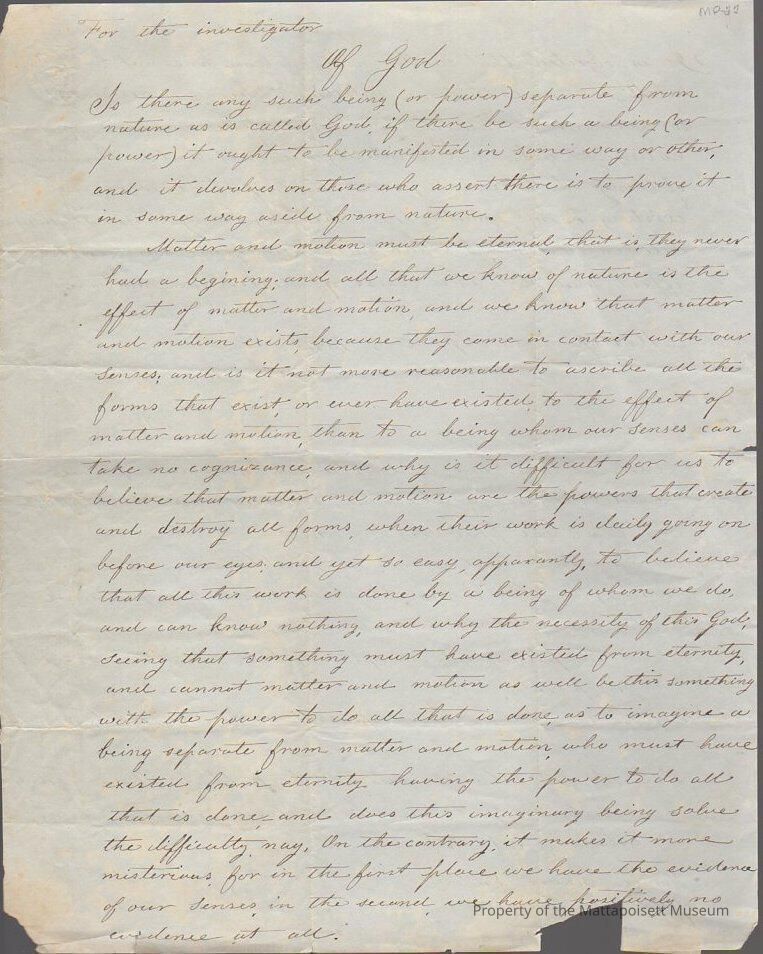 MP-22
For the investigator
Of God
Is there any such being (or power) separate from
nature as is called God, if there be such a being (or
power) it ought to be manifested in some way or other,
and it devolves on those who assert there is to prove it
in some way aside from nature.
Matter and motion must be eternal, that is, they never
had a begining; and all that we know of nature is the
effect of matter and motion, and we know that matter
and motion exists, because they come in contact with our
senses; and is it not more reasonable to ascribe all the
forms that exist, or ever have existed, to the effect of
matter and motion, than to a being whom our senses can
take no cognizance, and why is it difficult for us to
believe that matter and motion are the powers that create
and destroy all forms, when their work is daily going on
before our eyes; and yet so easy, apparantly, to believe
that all this work is done by a being of whom we do,
and can know nothing, and why the necessity of this God,
seeing that something must have existed from eternity,
and cannot matter and motion as well be this something
with the power to do all that is done, as to imagine a
being separate from matter and motion, who must have
existed from eternity having the power to do all
that is done, and does this imaginary being solve
the difficulty, nay, On the contrary, it makes it more
misterious, for in the first place we have the evidence
of our senses, in the second, we have positively no
evidence at all.
Property of the Mattapoisett Museum